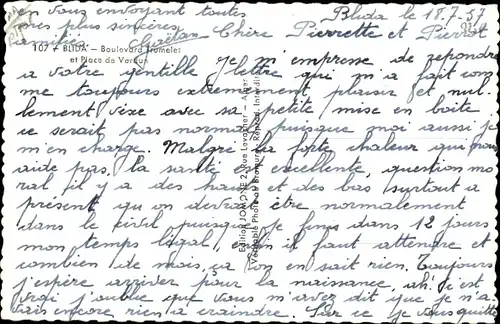 Blida le 18.7.57
Chère Pierrette et Pierrot
Je m'empresse de répondre
a votre gentille lettre qui m'a fait com
me toujours extrêmement plaisir et nul
lement vexé avec sa petite mise en boite
ce serait pas normal puisque moi aussi j
m'en charge. Malgré la forte chaleur qui nous
aide pas, la santé est excellente, question mo
ral il y a des hauts et des bas surtout a
présent qu on devrait être normalement
dans le civil puisque je finis dans 12 jours
mon temps légal, enfin il faut attendre et
combien de mois, ça on en sait rien. Toujours
j'espère arriver pour la naissance, ah! c'est
vrai j'oublie que vous m'avez dit que je n'a
vais encore rien a craindre. Sur ce je vous quitte
en vous envoyant toutes
mes plus sincères
amitiés. Gaëtan
107 - BLIDA - Boulevard Trumelet
et Place de Verdun
Edition JOMONE 2, rue Levacher - Alger
Véritable Photo au Bromure - Reprod. Interdite